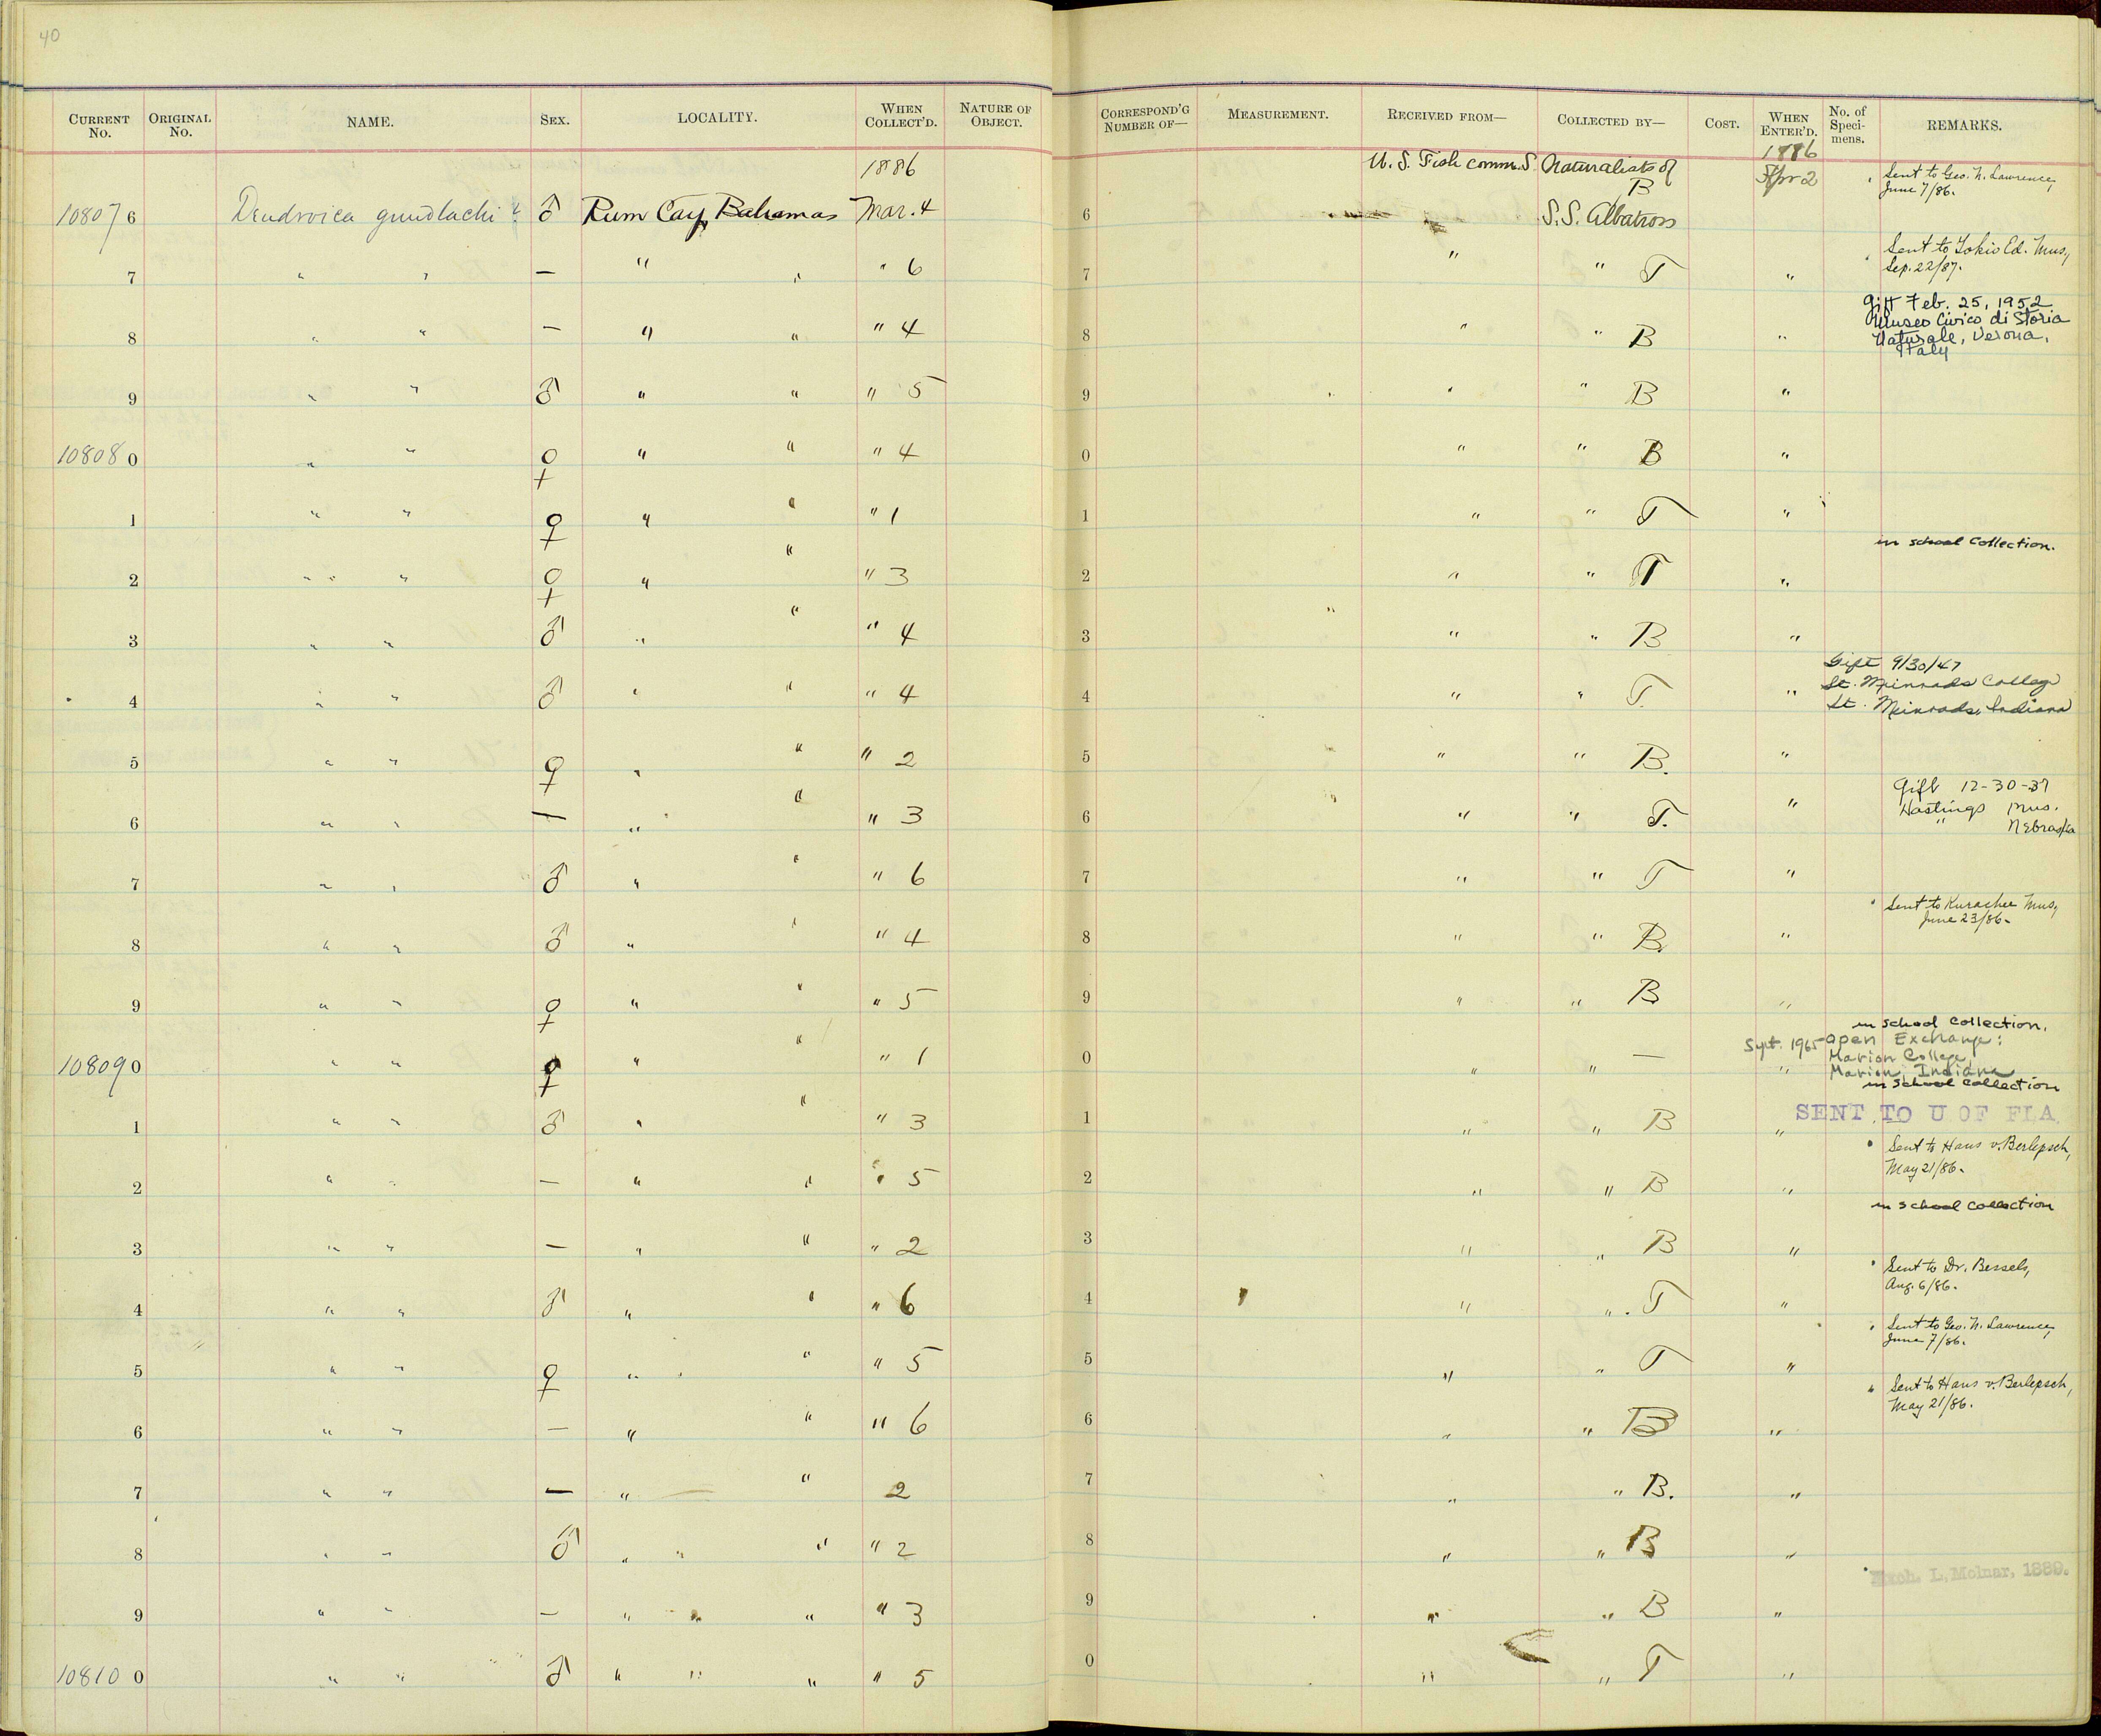 40
CURRENT No. ORIGINAL No. NAME. SEX. LOCALITY. WHEN COLLECT'D. NATURE OF OBJECT. CORRESPOND'G NUMBER OF— MEASUREMENT. RECEIVED FROM— COLLECTED BY— COST. WHEN ENTER'D. No. of Specimens. REMARKS.
1886 U. S. Fish comm. S. Naturalists of 1886
B Apr 2 Sent to Geo. N. Lawrence, June 7/86.
10807 6 Dendroica gundlachi ♂ Rum Cay, Bahamas Mar. 4 6 S.S. Albatross
7 " " — " " " 6 7 " " T " Sent to Tokio Ed. Mus., Sep. 22/87.
8 " " — " " " 4 8 " " B " Gift Feb. 25, 1952
Museo Civico di Storia
Naturale, Verona,
Italy
9 " " ♂ " " " 5 9 " " B "
10808 0 " " ♀ " " " 4 0 " " B "
1 " " ♀ " " " 1 1 " " T "
in school collection.
2 " " ♀ " " " 3 2 " " T "
3 " " ♂ " " " 4 3 " " B "
Gift 9/30/47
4 " " ♂ " " " 4 4 " " T. " St. Meinrads College
St. Meinrads, Indiana
5 " " ♀ " " " 2 5 " " B. "
Gift 12-30-37
6 " " — " " " 3 6 " " T. " Hastings Mus.
" Nebraska
7 " " ♂ " " " 6 7 " " T "
Sent to Kurachee Mus,
June 23/86.
8 " " ♂ " " " 4 8 " " B "
9 " " ♀ " " " 5 9 " " B "
in school collection.
Sept. 1965 Open Exchange:
Marion College
10809 0 " " ♀ " " " 1 0 " " — " Marion, Indiana
in school collection
1 " " ♂ " " " 3 1 " " B " SENT TO U OF FLA.
Sent to Hans v. Berlepsch,
May 21/86.
2 " " — " " " 5 2 " " B "
in school collection
3 " " — " " " 2 3 " " B "
Sent to Dr. Bessels,
Aug. 6/86.
4 " " ♂ " " " 6 4 " " T "
Sent to Geo. N. Lawrence,
June 7/86.
5 " " ♀ " " " 5 5 " " T "
Sent to Hans v. Berlepsch,
May 21/86.
6 " " — " " " 6 6 " " B "
7 " " — " " 2 7 " " B. "
8 " " ♂ " " " 2 8 " " B "
Exch. L. Molnar, 1889.
9 " " — " " " 3 9 " " B "
10810 0 " " ♂ " " " " 5 0 " " T "